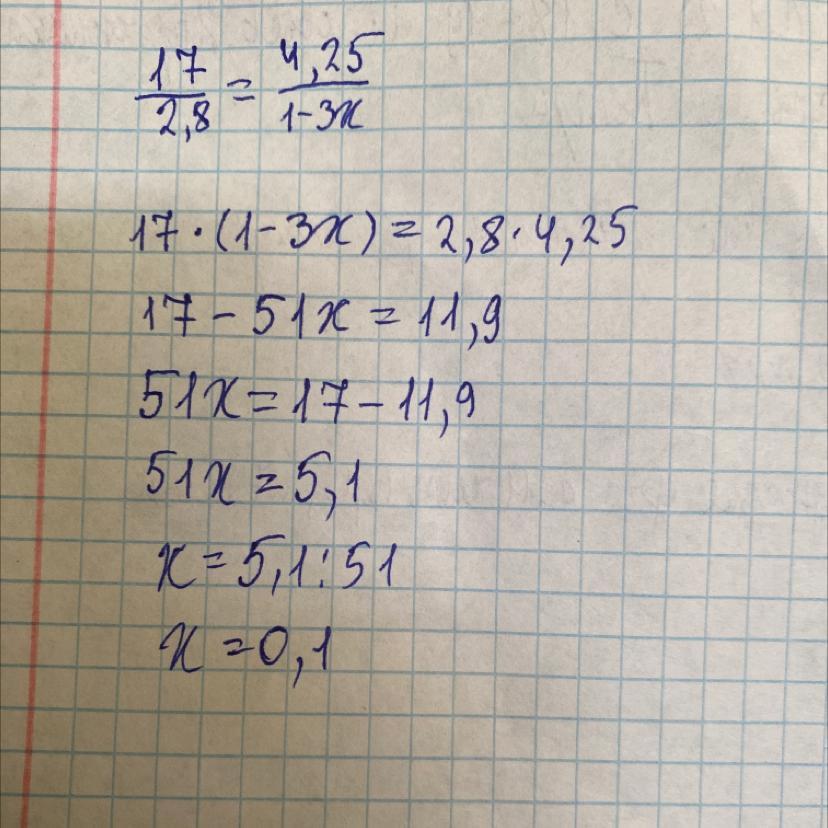 17/2,8 = 4,25/1-3x
17·(1-3x)=2,8·4,25
17-51x=11,9
51x=17-11,9
51x=5,1
x=5,1:51
x=0,1